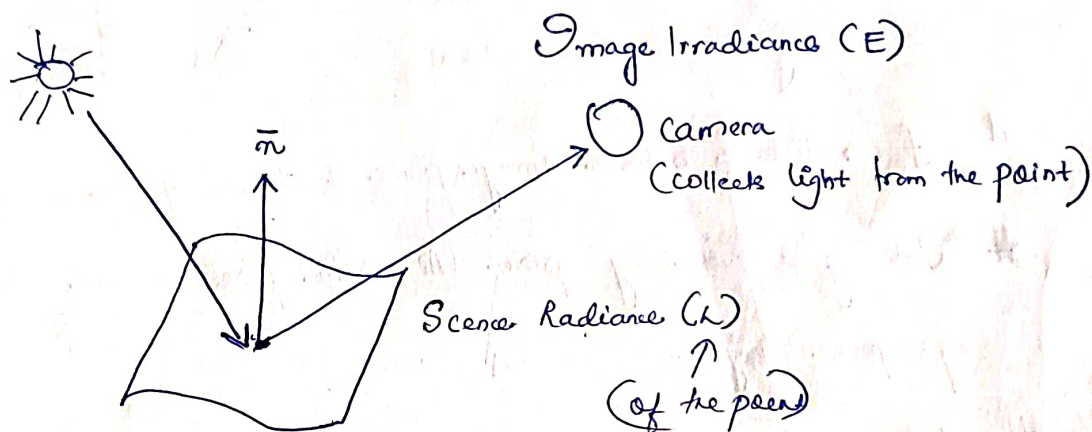 Image Irradiance (E)
n̄
camera
(collects light from the point)
Scence Radiance (L)
(of the point)